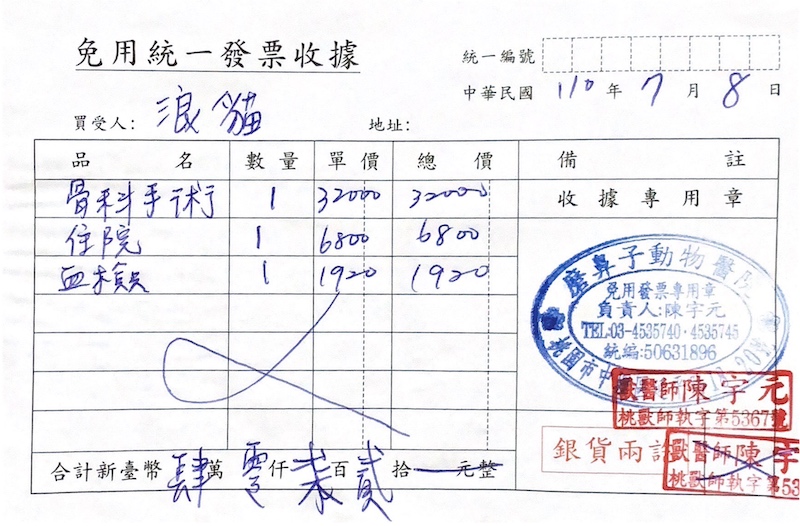 免用統一發票收據
統一編號
中華民國 110 年 7 月 8 日
買受人: 浪貓 地址:
品名 數量 單價 總價 備註
骨科手術 1 32000 32000 收據專用章
住院 1 6800 6800
血檢 1 1920 1920
磨鼻子動物醫院
免用發票專用章
負責人:陳宇元
TEL:03-4535740·4535745
統編:50631896
桃園市中
獸醫師陳宇元
桃獸師執字第5367號
銀貨兩訖
獸醫師陳宇
桃獸師執字第53
合計新臺幣 肆萬 零仟 柒百 貳拾 元整